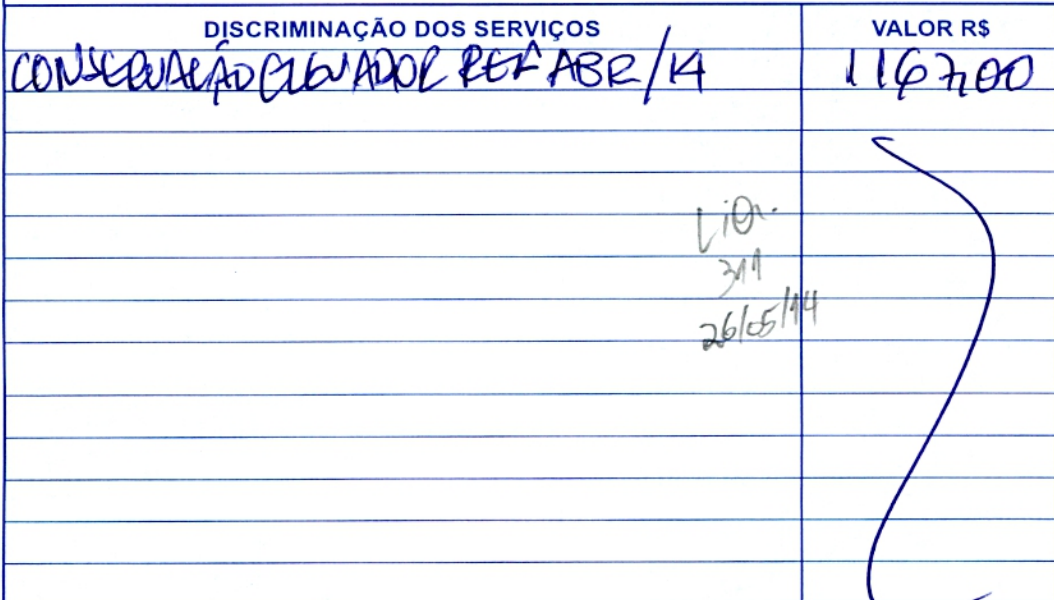 DISCRIMINAÇÃO DOS SERVIÇOS VALOR R$
CONSERVAÇÃO ELEVADOR REF ABR/14 1167,00
Liq.
311
26/05/14